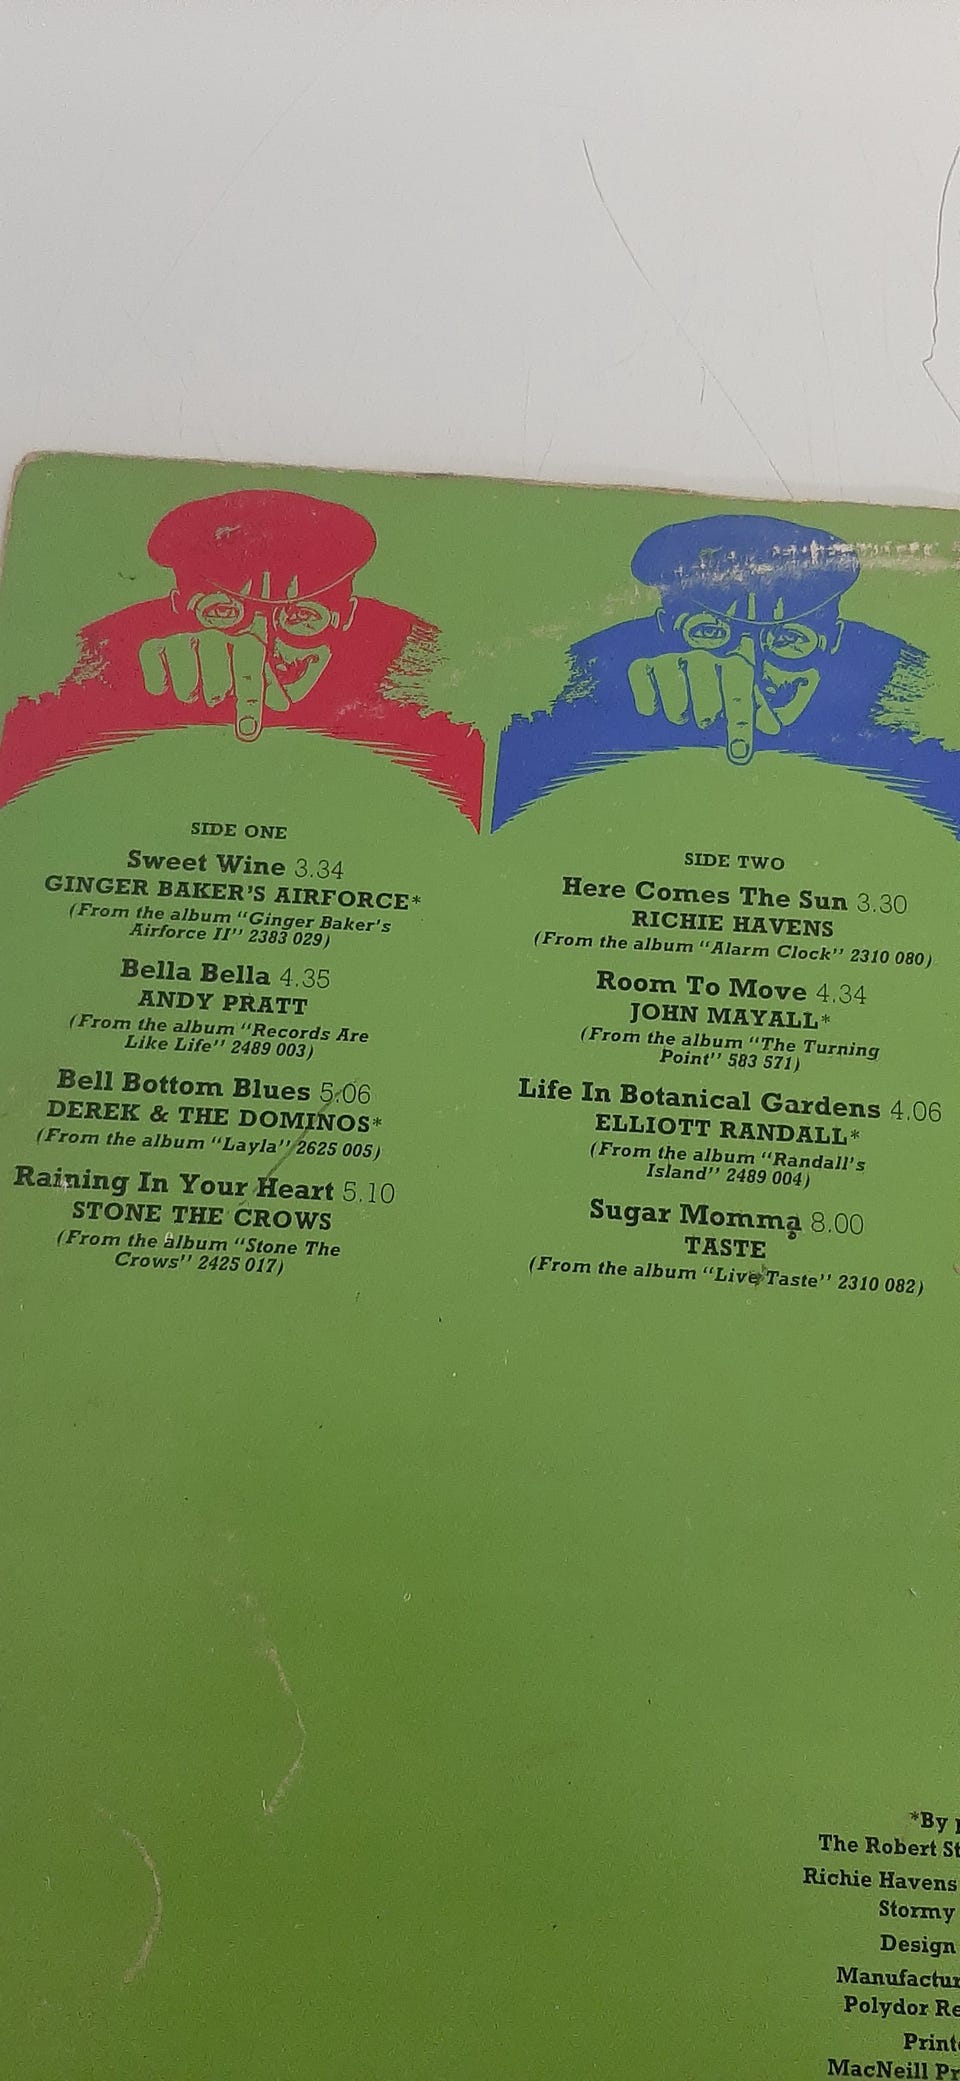 SIDE ONE
Sweet Wine 3.34
GINGER BAKER'S AIRFORCE*
(From the album "Ginger Baker's
Airforce II" 2383 029)
Bella Bella 4.35
ANDY PRATT
(From the album "Records Are
Like Life" 2489 003)
Bell Bottom Blues 5.06
DEREK & THE DOMINOS*
(From the album "Layla" 2625 005)
Raining In Your Heart 5.10
STONE THE CROWS
(From the album "Stone The
Crows" 2425 017)
SIDE TWO
Here Comes The Sun 3.30
RICHIE HAVENS
(From the album "Alarm Clock" 2310 080)
Room To Move 4.34
JOHN MAYALL*
(From the album "The Turning
Point" 583 571)
Life In Botanical Gardens 4.06
ELLIOTT RANDALL*
(From the album "Randall's
Island" 2489 004)
Sugar Momma 8.00
TASTE
(From the album "Live Taste" 2310 082)
*By
The Robert St
Richie Havens
Stormy
Design
Manufactur
Polydor Re
Print
MacNeill Pr